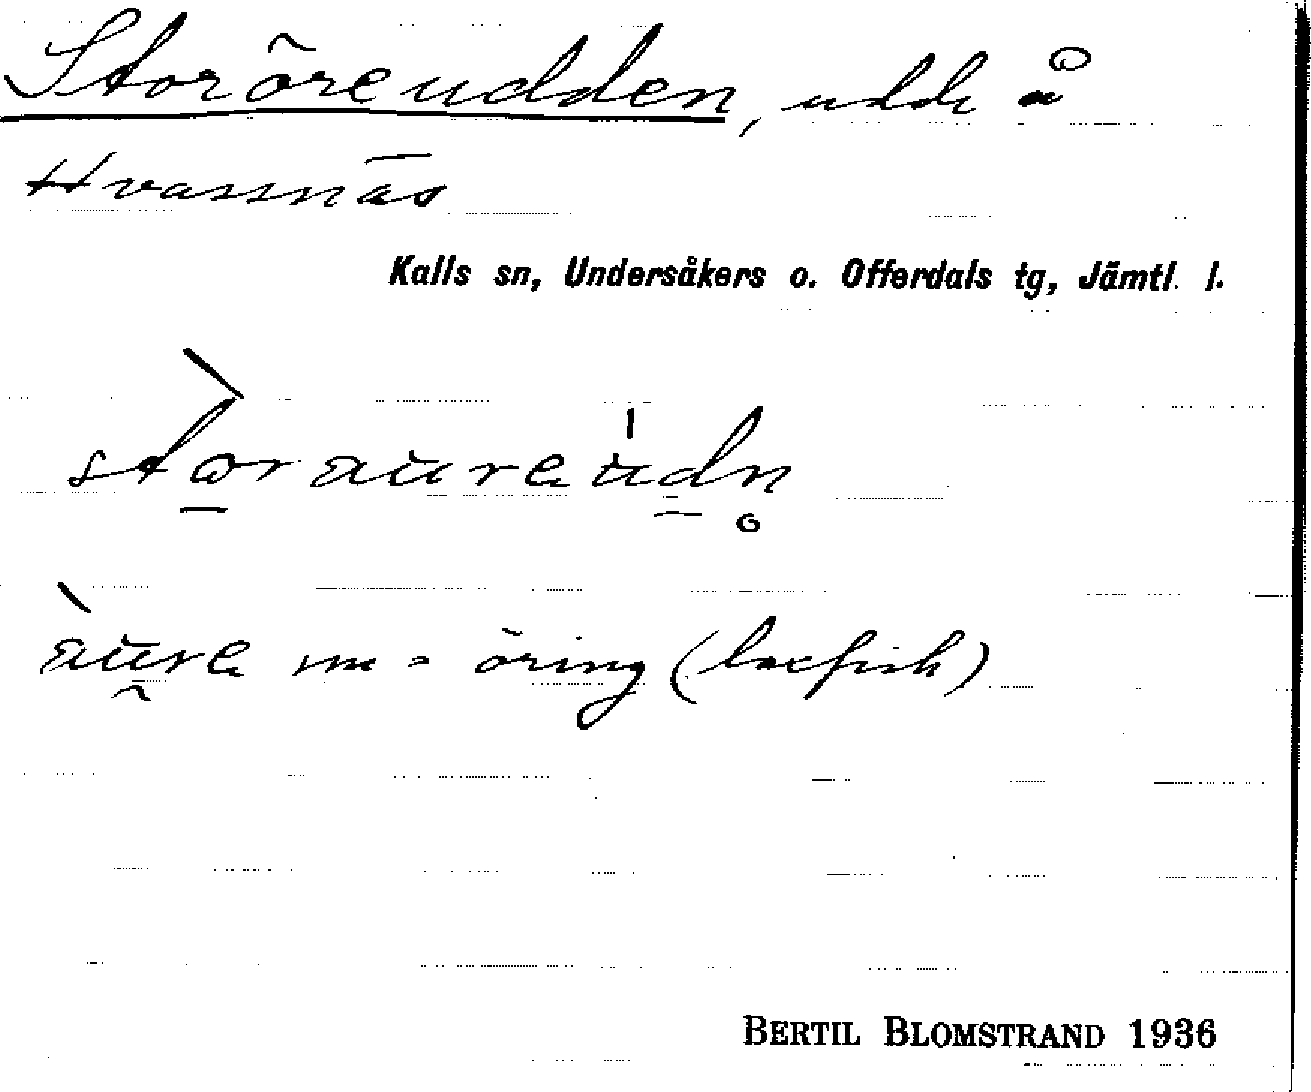 Storöreudden, udde å
Hvassnäs
Kalls sn, Undersåkers o. Offerdals tg, Jämtl. l.
storaureudn
aure m = öring (laxfisk)
BERTIL BLOMSTRAND 1936